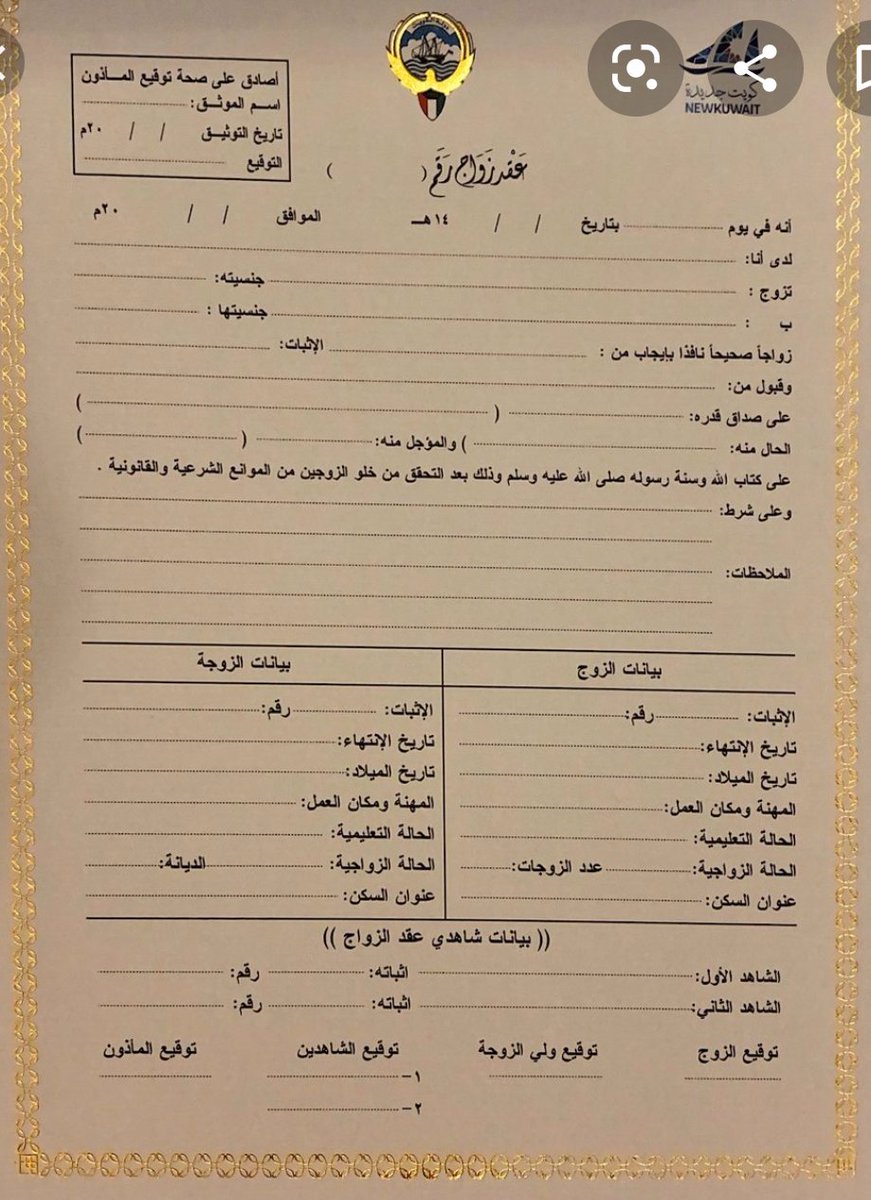 كويت جديدة
NEWKUWAIT
أصادق على صحة توقيع المـــأذون
اسـم الموثـق:
تاريخ التوثيـق / / ٢٠م
التوقيع
عقد زواج رقم ( )
أنه في يوم بتاريخ / / ١٤هـ الموافق / / ٢٠م
لدى أنا:
تزوج : جنسيته:
ب : جنسيتها :
زواجاً صحيحاً نافذا بإيجاب من : الإثبات:
وقبول من:
على صداق قدره: ( )
الحال منه: ( ) والمؤجل منه: ( )
على كتاب الله وسنة رسوله صلى الله عليه وسلم وذلك بعد التحقق من خلو الزوجين من الموانع الشرعية والقانونية .
وعلى شرط:
الملاحظات:
بيانات الزوج بيانات الزوجة
الإثبات: رقم: الإثبات: رقم:
تاريخ الإنتهاء: تاريخ الإنتهاء:
تاريخ الميلاد: تاريخ الميلاد:
المهنة ومكان العمل: المهنة ومكان العمل:
الحالة التعليمية: الحالة التعليمية:
الحالة الزواجية: عدد الزوجات: الحالة الزواجية: الديانة:
عنوان السكن: عنوان السكن:
(( بيانات شاهدي عقد الزواج ))
الشاهد الأول: اثباته: رقم:
الشاهد الثاني: اثباته: رقم:
توقيع الزوج توقيع ولي الزوجة توقيع الشاهدين توقيع المأذون
١-
٢-